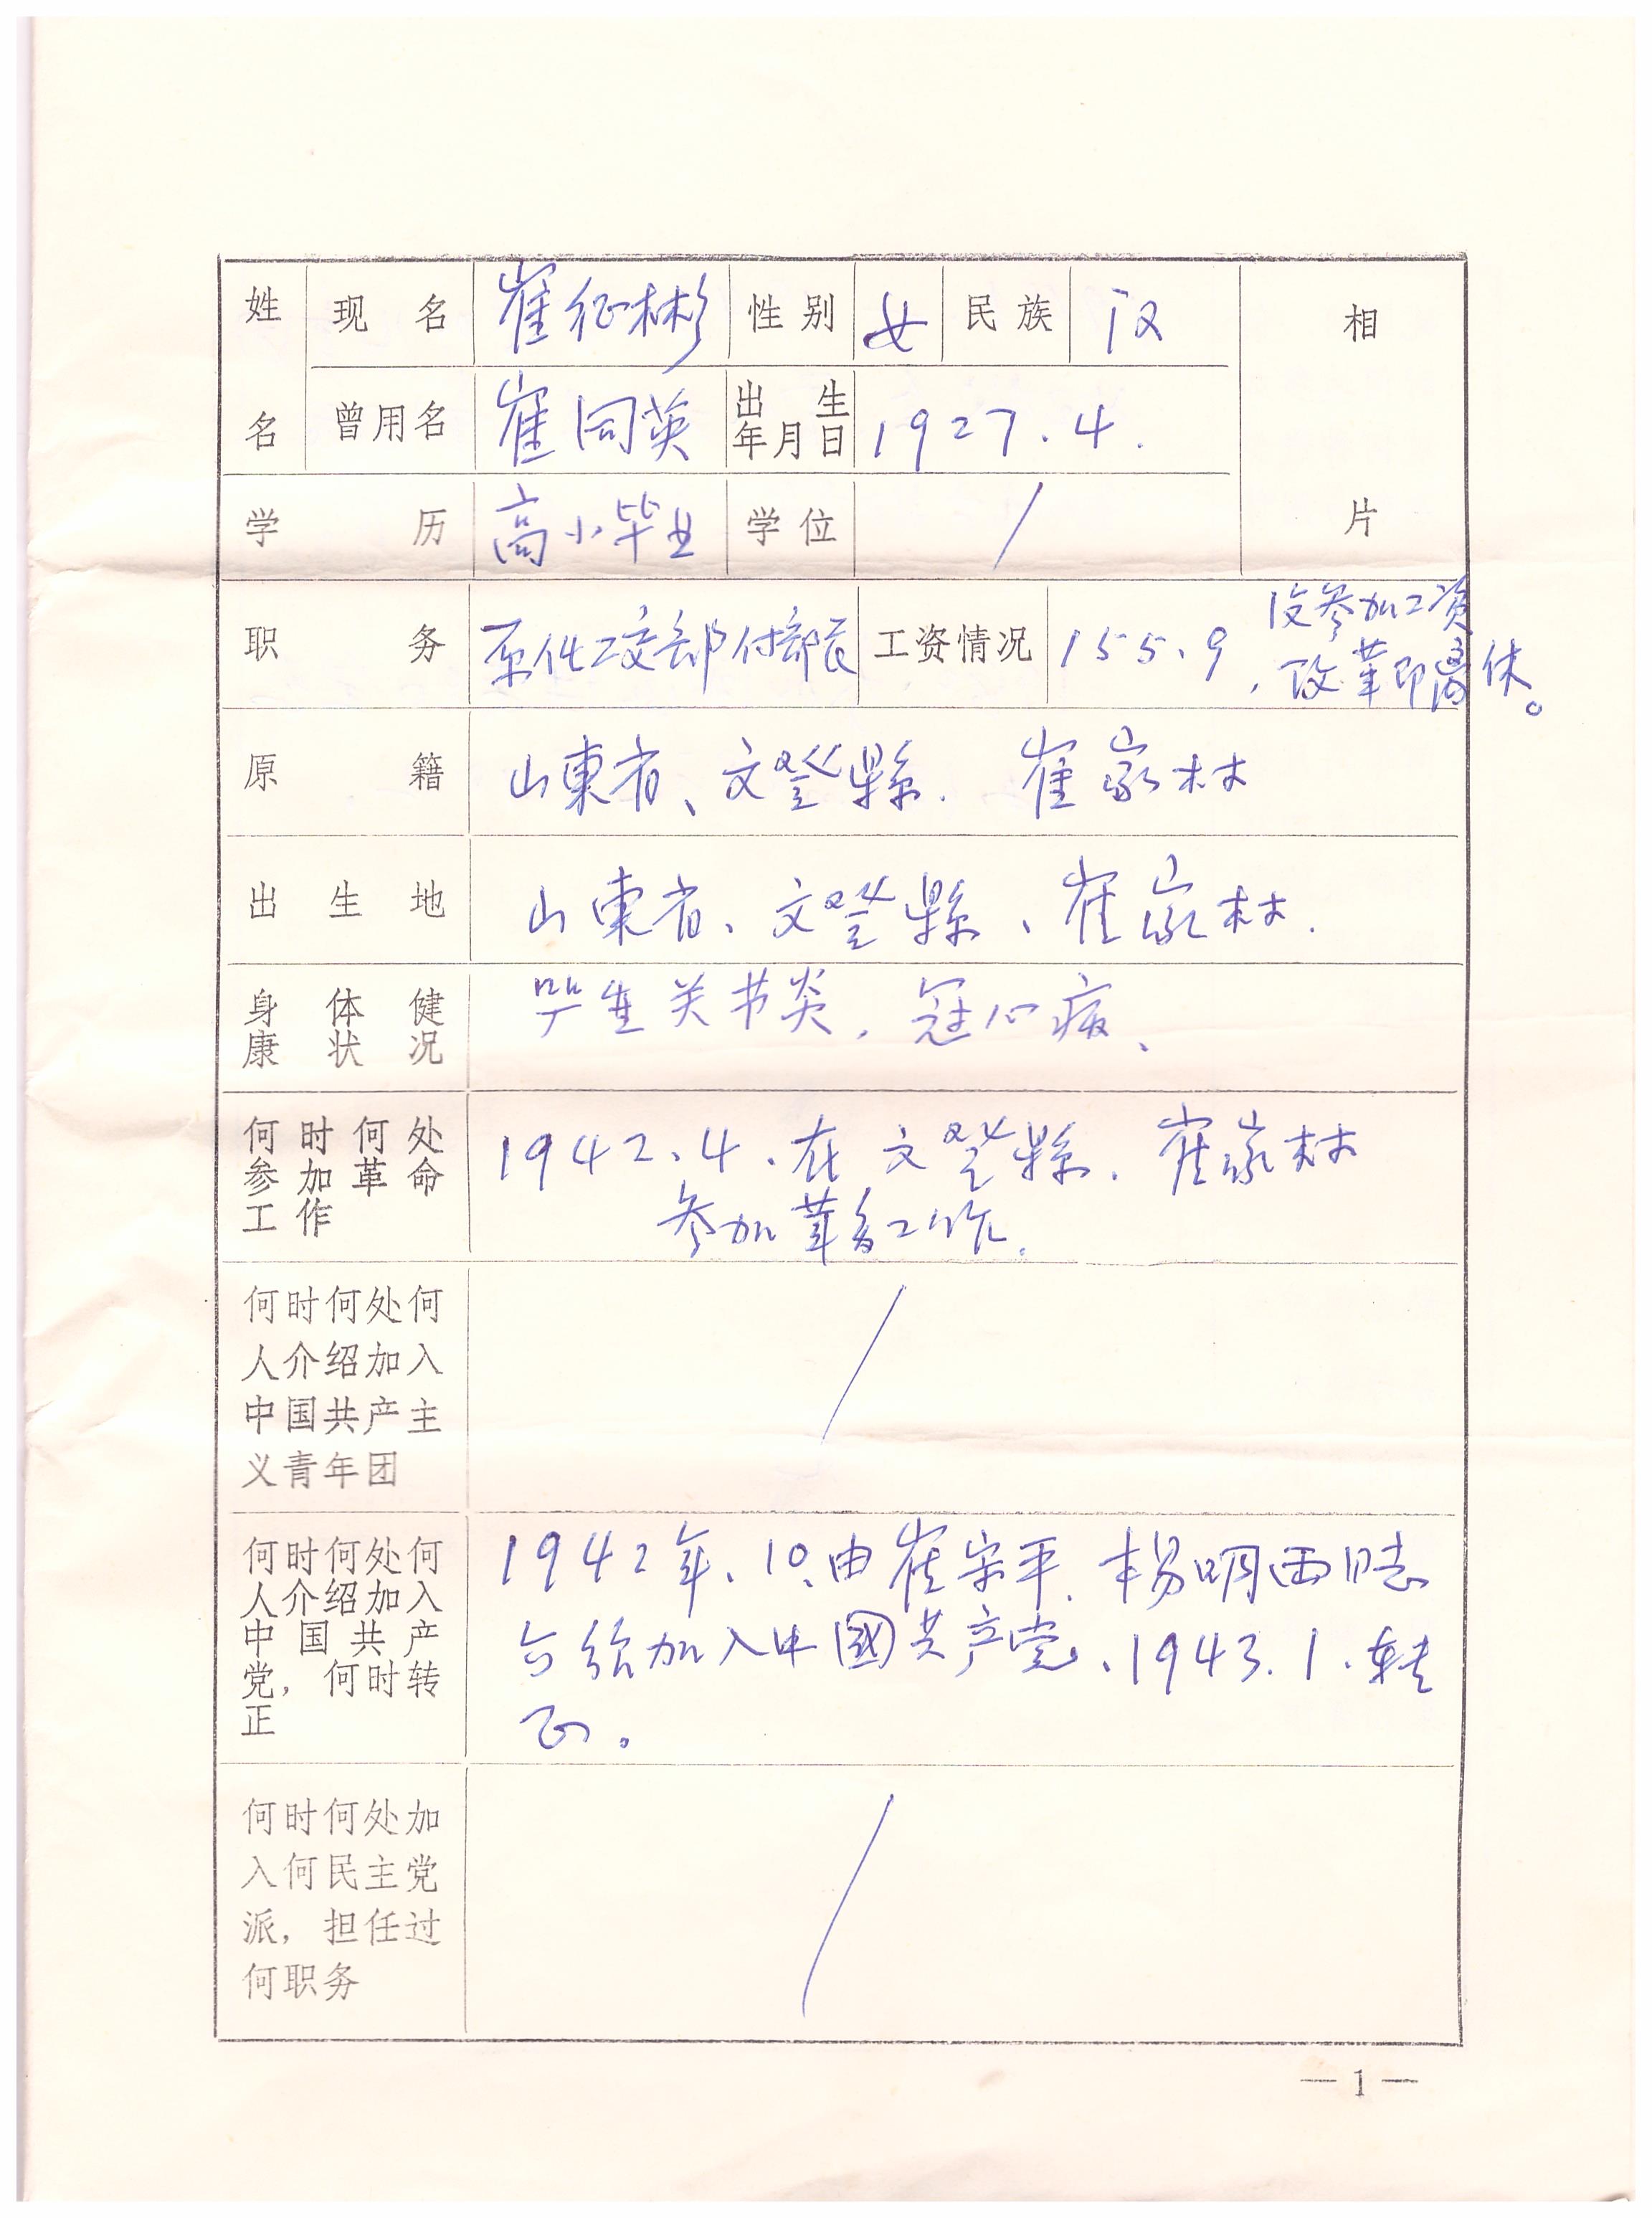 姓名 现名 崔征彬 性别 女 民族 汉 相片
曾用名 崔同英 出生年月日 1927.4.
学历 高小毕业 学位 /
职务 原化工交部付部长 工资情况 155.9, 没参加工资
改革即离休。
原籍 山東省、文登縣. 崔家林
出生地 山東省、文登縣、崔家林.
身体健 关节炎, 冠心病、
康状况
何时何处 1942.4.在文登縣.崔家林
参加革命 参加革命工作.
工作
何时何处何 /
人介绍加入
中国共产主
义青年团
何时何处何 1942年、10、由崔宗平.杨明西同志
人介绍加入 介绍加入中國共产党、1943.1.转
中国共产 正。
党，何时转
正
何时何处加 /
入何民主党
派，担任过
何职务
— 1 —